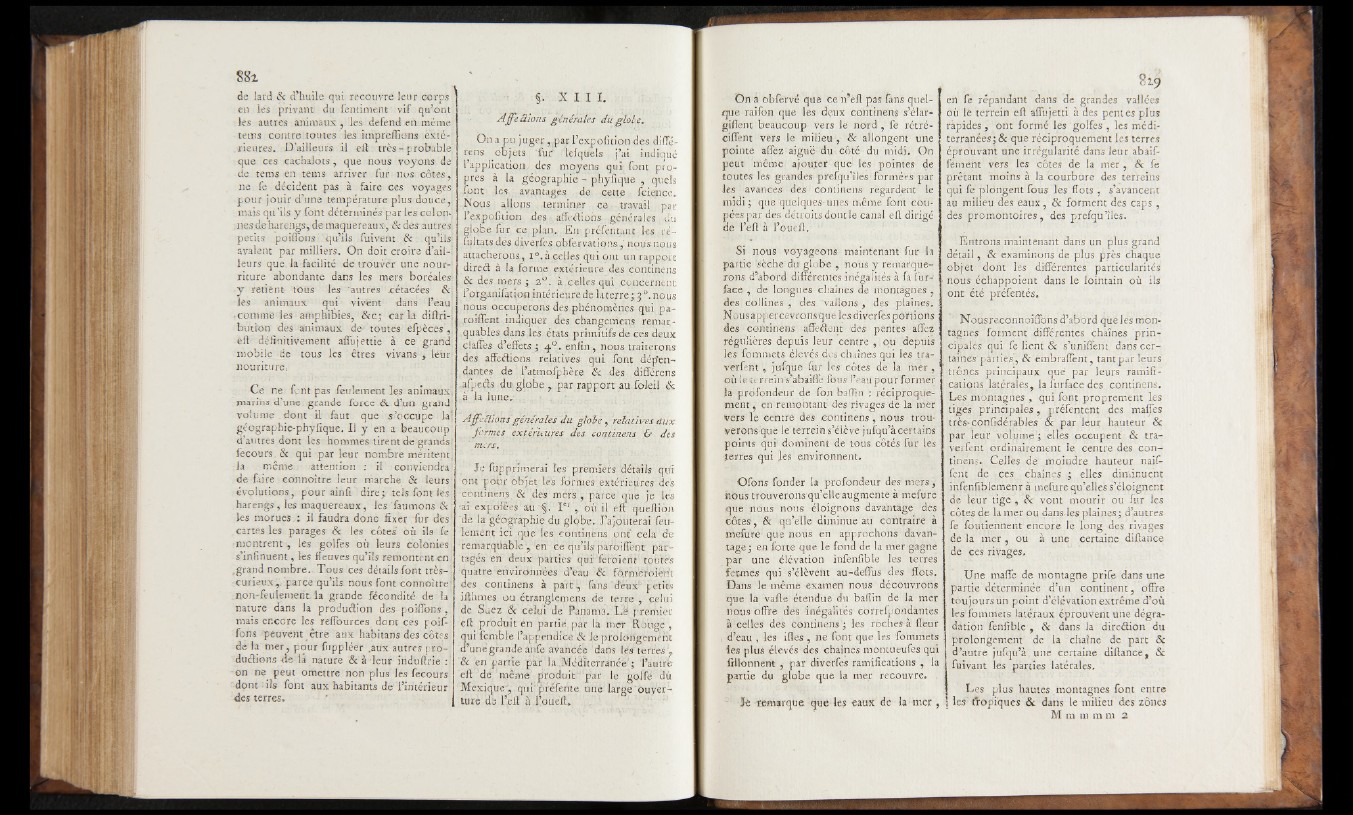 882
de lard & d'huile qui recouvre leur corps
en les privant du ſentiment vif qu'ont
les autres animaux, les defend en même
tems contre toutes les impreſſions exté-
rieures. D'ailleurs il eſt très-probable
que ces cachalots, que nous voyons de
de tems en tems arriver ſur nos côtes,
ne ſe décident pas à faire ces voyages
pour jouir d'une température plus douce,
mais qu'ils y ſont déterminés par les colon-
nes de harengs, de maquereaux, & des autres
petits poiſſons qu'ils ſuivent & qu'ils
avalent par milliers. On doit croire d'ail-
leurs que la facilité de trouver une nour-
riture abondante dans les mers boréales
y retient tous les autres cétacées &
les animaux qui vivent dans l'eau
comme les amphibies, &c; car la diſtri-
bution des animaux de toutes eſpèces,
eſt définitivement aſſujettie à ce grand
mobile de tous les êtres vivans, leur
nouriture.
Ce ne ſont pas ſeulement les animaux
marins d'une grande force & d'un grand
volume dont il faut que s'occupe la
géographie-phyſique. Il y en a beaucoup
d'autres dont les hommes tirent de grands
ſecours, & qui par leur nombre méritent
la même attention : il conviendra
de faire connoître leur marche & leurs
évolutions, pour ainſi dire; tels ſont les
harengs, les maquereaux, les ſaumons &
les morues : il faudra donc fixer ſur des
cartes les parages & les côtes où ils ſe
montrent, les golfes où leurs colonies
s'inſinuent, les fleuves qu'ils remontent en
grand nombre. Tous ces détails ſont très-
curieux, parce qu'ils nous font connoître
non-ſeulement la grande fécondité de la
nature dans la production des poiſſons,
mais encore les reſſources dont ces poiſ-
ſons peuvent être aux habitans des côtes
de la mer, pour ſuppléer aux autres pro-
ductions de la nature & à leur induſtrie :
on ne peut omettre non plus les ſecours
dont ils ſont aux habitants de l'intérieur
des terres.
§. X I I I.
Affections générales du globe.
On a pu juger, par l'expoſition des diffé-
rens objets ſur leſquels j'ai indiqué
l'application des moyens qui ſont pro-
pres à la géographie-phyſique, quels
ſont les avantages de cette ſcience.
Nous allons terminer ce travail par
l'expoſition des affections générales du
globe ſur ce plan. En préſentant les ré-
ſultats des diverſes obſervations, nous nous
attacherons, 1°. à celles qui ont un rapport
direct à la forme extérieure des continens
& des mers; 2°. à celles qui concernent
l'organiſation intérieure de la terre; 3°. nous
nous occuperons des phénomènes qui pa-
roiſſent indiquer des changemens remar-
quables dans les états primitifs de ces deux
claſſes d'effets; 4°. enfin, nous traiterons
des affections relatives qui ſont dépen-
dantes de l'atmoſphère & des différens
aſpects du globe, par rapport au ſoleil &
à la lune.
Affections générales du globe, relatives aux
formes extérieures des continens & des
mers.
Je ſupprimerai les premiers détails qui
ont pour objet les formes extérieures des
continens & des mers, parce que je les
ai expoſées au §. Ier, où il eſt queſtion
de la géographie du globe. J'ajouterai ſeu-
lement ici que les continens ont cela de
remarquable, en ce qu'ils paroiſſent par-
tagés en deux parties qui ſeroient toutes
quatre environnées d'eau & formeroient
des continens à part, ſans deux petits
iſthmes ou étranglemens de terre, celui
de Suez & celui de Panama. Le premier
eſt produit en partie par la mer Rouge,
qui ſemble l'appendice & le prolongement
d'une grande anſe avancée dans les terres,
& en partie par la Méditerranée; l'autre
eſt de même produit par le golfe du
Mexique, qui préſente une large ouver-
ture de l'eſt à l'oueſt.
829
On a obſervé que ce n'eſt pas ſans quel-
que raiſon que les deux continens s'élar-
giſſent beaucoup vers le nord, ſe rétré-
ciſſent vers le milieu, & allongent une
pointe aſſez aiguë du côté du midi. On
peut même ajouter que les pointes de
toutes les grandes preſqu'iles formées par
les avances des continens regardent le
midi; que quelques-unes même ſont cou-
pées par des détroits dont le canal eſt dirigé
de l'eſt à l'oueſt.
Si nous voyageons maintenant ſur la
partie sèche du globe, nous y remarque-
rons d'abord différentes inégalités à ſa ſur-
face, de longues chaînes de montagnes,
des collines, des vallons, des plaines.
Nous appercevrons que les diverſes portions
des continens affectent des pentes aſſez
régulières depuis leur centre, ou depuis
les ſommets élevés des chaînes qui les tra-
verſent, juſque ſur les côtes de la mer,
où le terrein s'abaiſſe ſous l'eau pour former
la profondeur de ſon baſſin : réciproque-
ment, en remontant des rivages de la mer
vers le centre des continens, nous trou-
verons que le terrein s'élève juſqu'à certains
points qui dominent de tous côtés ſur les
terres qui les environnent.
Oſons ſonder la profondeur des mers,
nous trouverons qu'elle augmente à meſure
que nous nous éloignons davantage des
côtes, & qu'elle diminue au contraire à
meſure que nous en approchons davan-
tage; en ſorte que le fond de la mer gagne
par une élévation inſenſible les terres
fermes qui s'élèvent au-deſſus des flots.
Dans le même examen nous découvrons
que la vaſte étendue du baſſin de la mer
nous offre des inégalités correſpondantes
à celles des continens; les roches à fleur
d'eau, les iſles, ne ſont que les ſommets
les plus élevés des chaînes montueuſes qui
ſillonnent, par diverſes ramifications, la
partie du globe que la mer recouvre.
Je remarque que les eaux de la mer,
en ſe répandant dans de grandes vallées
où le terrein eſt aſſujetti à des pentes plus
rapides, ont formé les golfes, les médi-
terranées; & que réciproquement les terres
éprouvant une irrégularité dans leur abaiſ-
ſement vers les côtes de la mer, & ſe
prêtant moins à la courbure des terreins
qui ſe plongent ſous les flots, s'avancent
au milieu des eaux, & forment des caps,
des promontoires, des preſqu'îles.
Entrons maintenant dans un plus grand
détail, & examinons de plus près chaque
objet dont les différentes particularités
nous échappoient dans le lointain où ils
ont été préſentés.
Nous reconnoiſſons d'abord que les mon-
tagnes forment différentes chaînes prin-
cipales qui ſe lient & s'uniſſent dans cer-
taines parties, & embraſſent, tant par leurs
troncs principaux que par leurs ramifi-
cations latérales, la ſurface des continens.
Les montagnes, qui ſont proprement les
tiges principales, préſentent des maſſes
très-conſidérables & par leur hauteur &
par leur volume; elles occupent & tra-
verſent ordinairement le centre des con-
tinens. Celles de moindre hauteur naiſ-
ſent de ces chaînes; elles diminuent
inſenſiblement à meſure qu'elles s'éloignent
de leur tige, & vont mourir ou ſur les
côtes de la mer ou dans les plaines; d'autres
ſe ſoutiennent encore le long des rivages
de la mer, ou à une certaine diſtance
de ces rivages.
Une maſſe de montagne priſe dans une
partie déterminée d'un continent, offre
toujours un point d'élévation extrême d'où
les ſommets latéraux éprouvent une dégra-
dation ſenſible, & dans la direction du
prolongement de la chaîne de part &
d'autre juſqu'à une certaine diſtance, &
ſuivant les parties latérales.
Les plus hautes montagnes ſont entre
les tropiques & dans le milieu des zônes
M m m m m 2